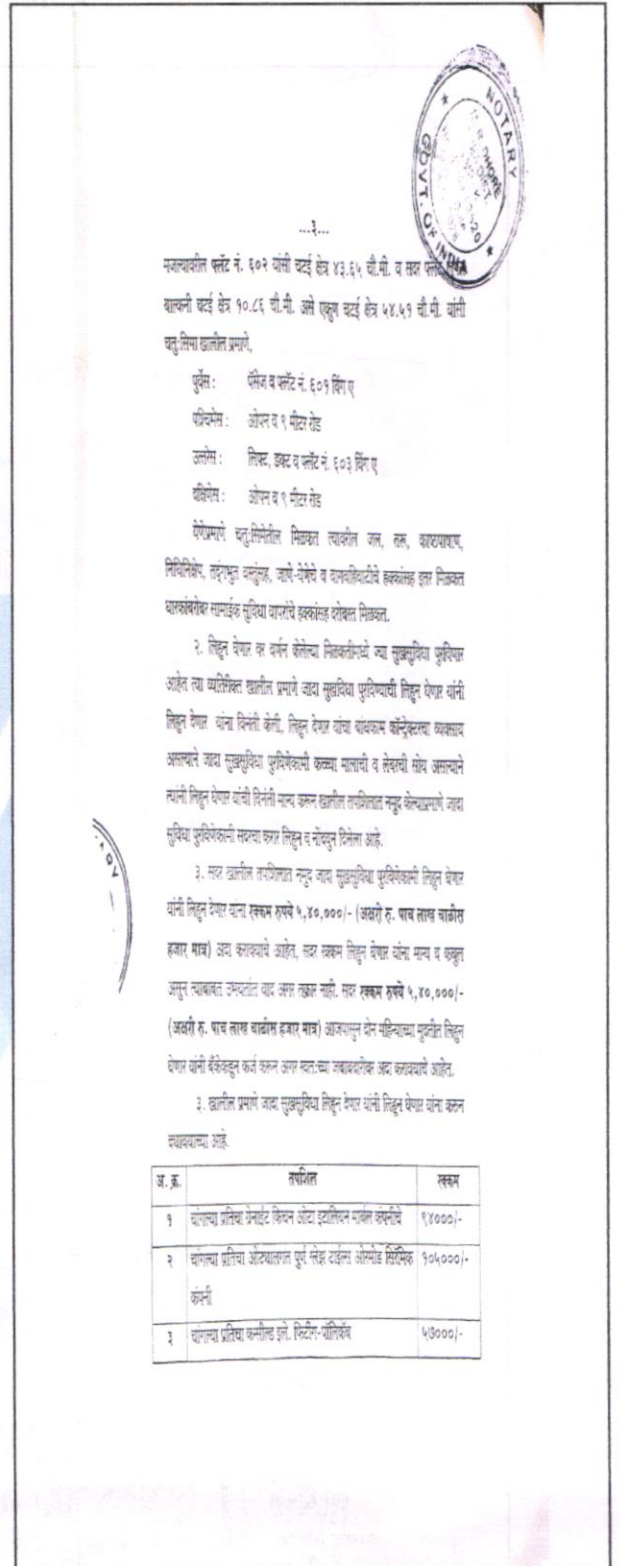 NOTARY
GOVT. OF INDIA
...३...
मजल्यावरील फ्लॅट नं. ६०२ यांसी चटई क्षेत्र ४३.६५ चौ.मी. व सदर
बाल्कनी चटई क्षेत्र १०.८६ चौ.मी. असे एकुण चटई क्षेत्र ५४.५१ चौ.मी. यांसी
चतु:सिमा खालील प्रमाणे,
पुर्वेस : पॅसेज व फ्लॅट नं. ६०१ विंग ए
पश्चिमेस : ओपन व ९ मीटर रोड
उत्तरेस : लिफ्ट, डक्ट व फ्लॅट नं. ६०३ विंग ए
दक्षिणेस : ओपन व ९ मीटर रोड
येणेप्रमाणे चतु:सिमेतील मिळकत त्यावरील जल, तरू, काष्ठपाषाण,
निधिनिक्षेप, तद्ंगभुत वस्तुंसह, जाणे-येणेचे व वागवहिवाटीचे हक्कांसह इतर मिळकत
धारकांबरोबर सामाईक सुविधा वापरांचे हक्कांसह दरोबस्त मिळकत.
२. लिहुन घेणार वर वर्णन केलेल्या मिळकतीमध्ये ज्या सुखसुविधा पुरविणार
आहेत त्या व्यतिरीक्त खालील प्रमाणे जादा सुखविधा पुरविण्याची लिहुन घेणार यांनी
लिहुन देणार यांना विनंती केली, लिहुन देणार यांचा बांधकाम कॉन्ट्रॅक्टरचा व्यवसाय
असल्याने जादा सुखसुविधा पुरविणेकामी कच्च्या मालाची व लेबरची सोय असल्याने
त्यांनी लिहुन घेणार यांची विनंती मान्य करून खालील तपशिलात नमुद केल्याप्रमाणे जादा
सुविधा पुरविणेकामी सदरचा करार लिहुन व नोंदवुन दिलेला आहे.
३. सदर खालील तपशिलात नमुद जादा सुखसुविधा पुरविणेकामी लिहुन घेणार
यांनी लिहुन देणार यांना रक्कम रुपये ५,४०,०००/- (अक्षरी रु. पाच लाख चाळीस
हजार मात्र) अदा करावयाचे आहेत, सदर रक्कम लिहुन घेणार यांना मान्य व कबुल
असुन त्याबाबत उभयतांत वाद अगर तक्रार नाही. सदर रक्कम रुपये ५,४०,०००/-
(अक्षरी रु. पाच लाख चाळीस हजार मात्र) आजपासुन दोन महिन्याच्या मुदतीत लिहुन
घेणार यांनी बँकेकडुन कर्ज करून अगर स्वत:च्या जबाबदारीवर अदा करावयाचे आहेत.
३. खालील प्रमाणे जादा सुखसुविधा लिहुन देणार यांनी लिहुन घेणार यांना करून
द्यावयाच्या आहे.
अ. क्र. तपशिल रक्कम
१ चांगल्या प्रतिचा ग्रेनाईट किचन ओटा इटालियन मार्बल कंपनीचे ९४०००/-
२ चांगल्या प्रतिचा ओट्यालगत पुर्ण ग्लेझ टाईल्स ओरमोड सिरॅमिक १०५०००/-
कंपनी
३ चांगल्या प्रतिचा कन्सील्ड इले. फिटींग-पॉलिकॅब ५७०००/-